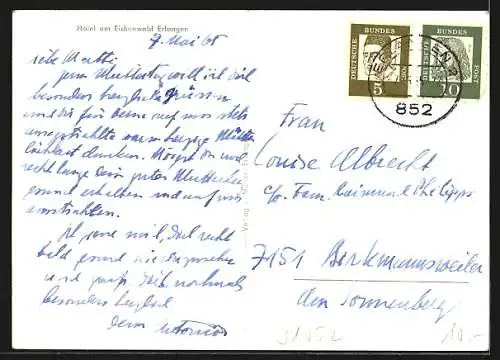 Hotel am Eichenwald Erlangen
7. Mai 65
liebe Mutti,
zum Muttertag will ich Dich
besonders herzlich grüssen
und Dir für Deine auf uns stets
ausgestrahlte warmherzige Mütter
lichkeit danken. Mögest Du noch
recht lange dein guter
gesund erhalten und auf uns
ausstrahlen.
Ich freue mich, Dich recht
bald gesund wiederzusehen
und grüße Dich nochmals
besonders herzlich
Dein
DEUTSCHE BUNDESPOST
5
DEUTSCHE BUNDESPOST
20
852
Frau
Louise Albrecht
c/o. Fam. Raimund Philipps
7151 Birkmannsweiler
Am Sonnenberg
Verlag
10.-